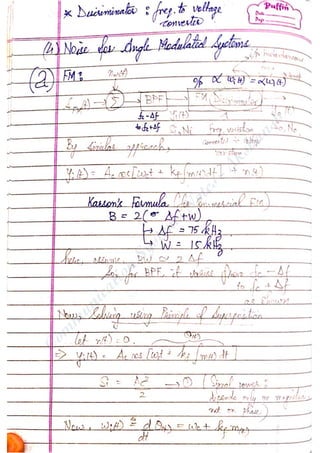 * Discriminator : freq. to voltage
converter
Puffin
Date
Page
(4) Noise for Angle Modulated Systems
(a) FM :
o/p ∝ ωi(t) = ∝ωi(t)
Σ → BPF → FM Discriminator
fc-Δf
to fc+Δf
yi(t)
Si, Ni
So, No
freq. variation
converted → voltage
By similar approach,
yi(t) = Ac cos[ωct + kf∫m(t)dt] + n(t)
Karson's Formula (for Commercial FM)
B = 2(Δf+W)
→ Δf = 75 kHz
→ W = 15 kHz
here, assume, BW ≃ 2Δf
So, for BPF, it varies from fc - Δf
to fc + Δf
as shown
Now, Solving using Principle of Superposition
let n(t) = 0.
⇒ yi(t) = Ac cos [ωct + kf∫m(t) dt]
Si = Ac²/2 → (1) (Signal power :
depends only on magnitude
not on phase)
Now, ωi(t) = d/dt θ(t) = ωc + kf m(t)